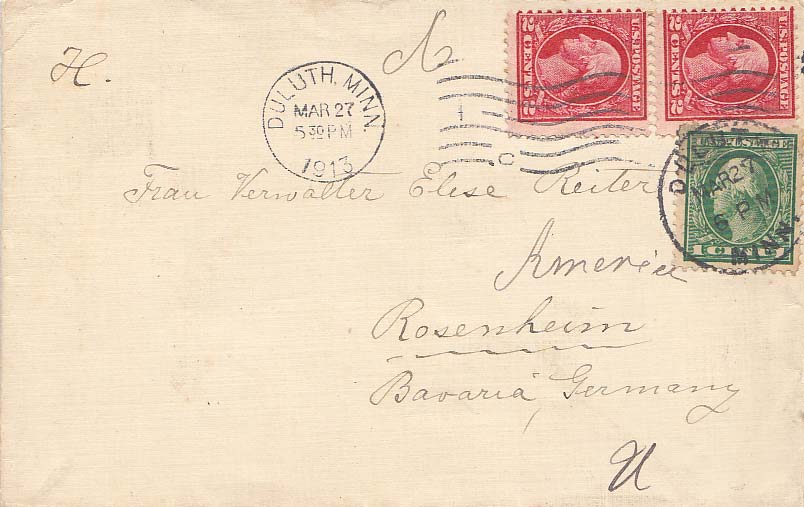 H.
U.S.POSTAGE
2 CENTS 2
U.S.POSTAGE
2 CENTS 2
DULUTH, MINN.
MAR 27
5 30 PM
1913
U.S. POSTAGE
1 CENT 1
DULUTH
MAR 27
6 PM
MINN.
Frau Verwalter Elise Reiter
America
Rosenheim
Bavaria, Germany